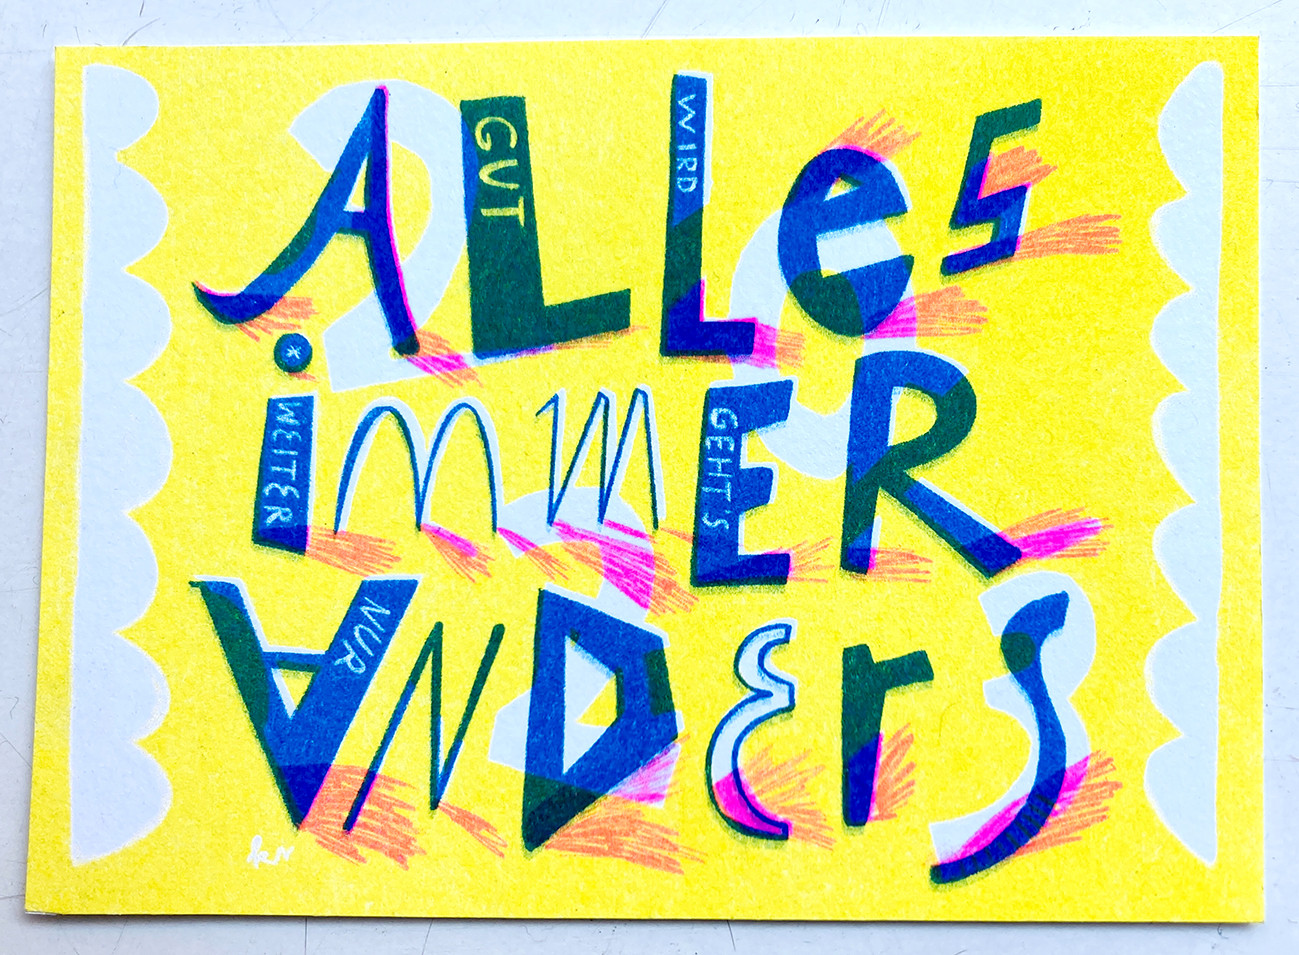 ALLes
immER
ANDErs
GUT
WIRD
WEITER
GEHT'S
NUR
2023